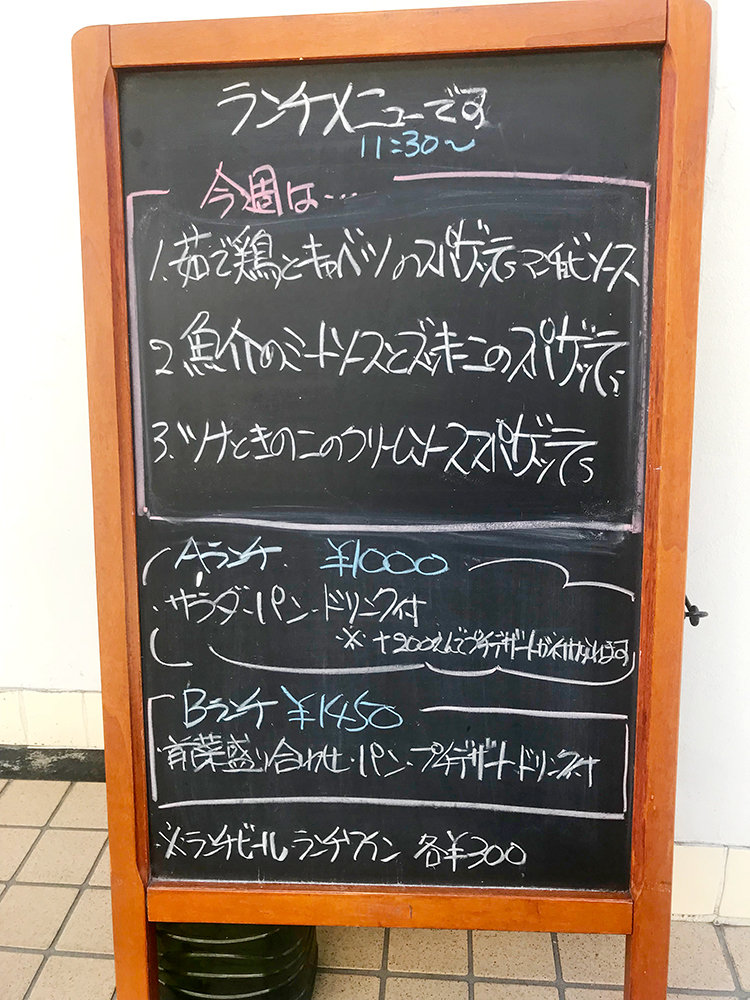 ランチメニューです
11:30〜
今週は…
1.茹で鶏とキャベツのスパゲッティ ソース
2.魚介のミートソースとズッキーニのスパゲッティ
3.ツナときのこのクリームソーススパゲッティ
Aランチ ¥1000
・サラダ・パン・ドリンク付
※ +200えんでプチデザートが付けられます
Bランチ ¥1450
前菜盛り合わせ・パン・プチデザート・ドリンク付
※ランチビール ランチワイン 各¥300